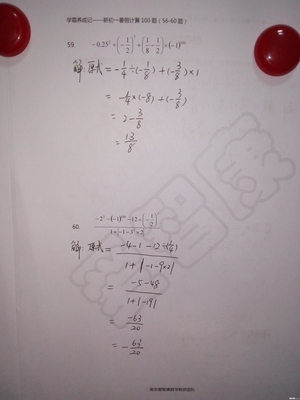 学霸养成记——新初一暑假计算100题（56-60题）
59. -0.25²÷(-1/2)³+(1/8-1/2)×(-1)¹⁰⁰
解：原式=-1/4÷(-1/8)+(-3/8)×1
=-1/4×(-8)+(-3/8)
=2-3/8
=13/8
60. (-2²-(-1)¹⁰⁰-12÷(-1/2)²)/(1+|-1-3²×2|)
解：原式=(-4-1-12÷(1/4))/(1+|-1-9×2|)
=(-5-48)/(1+|-19|)
=-63/20
=-63/20